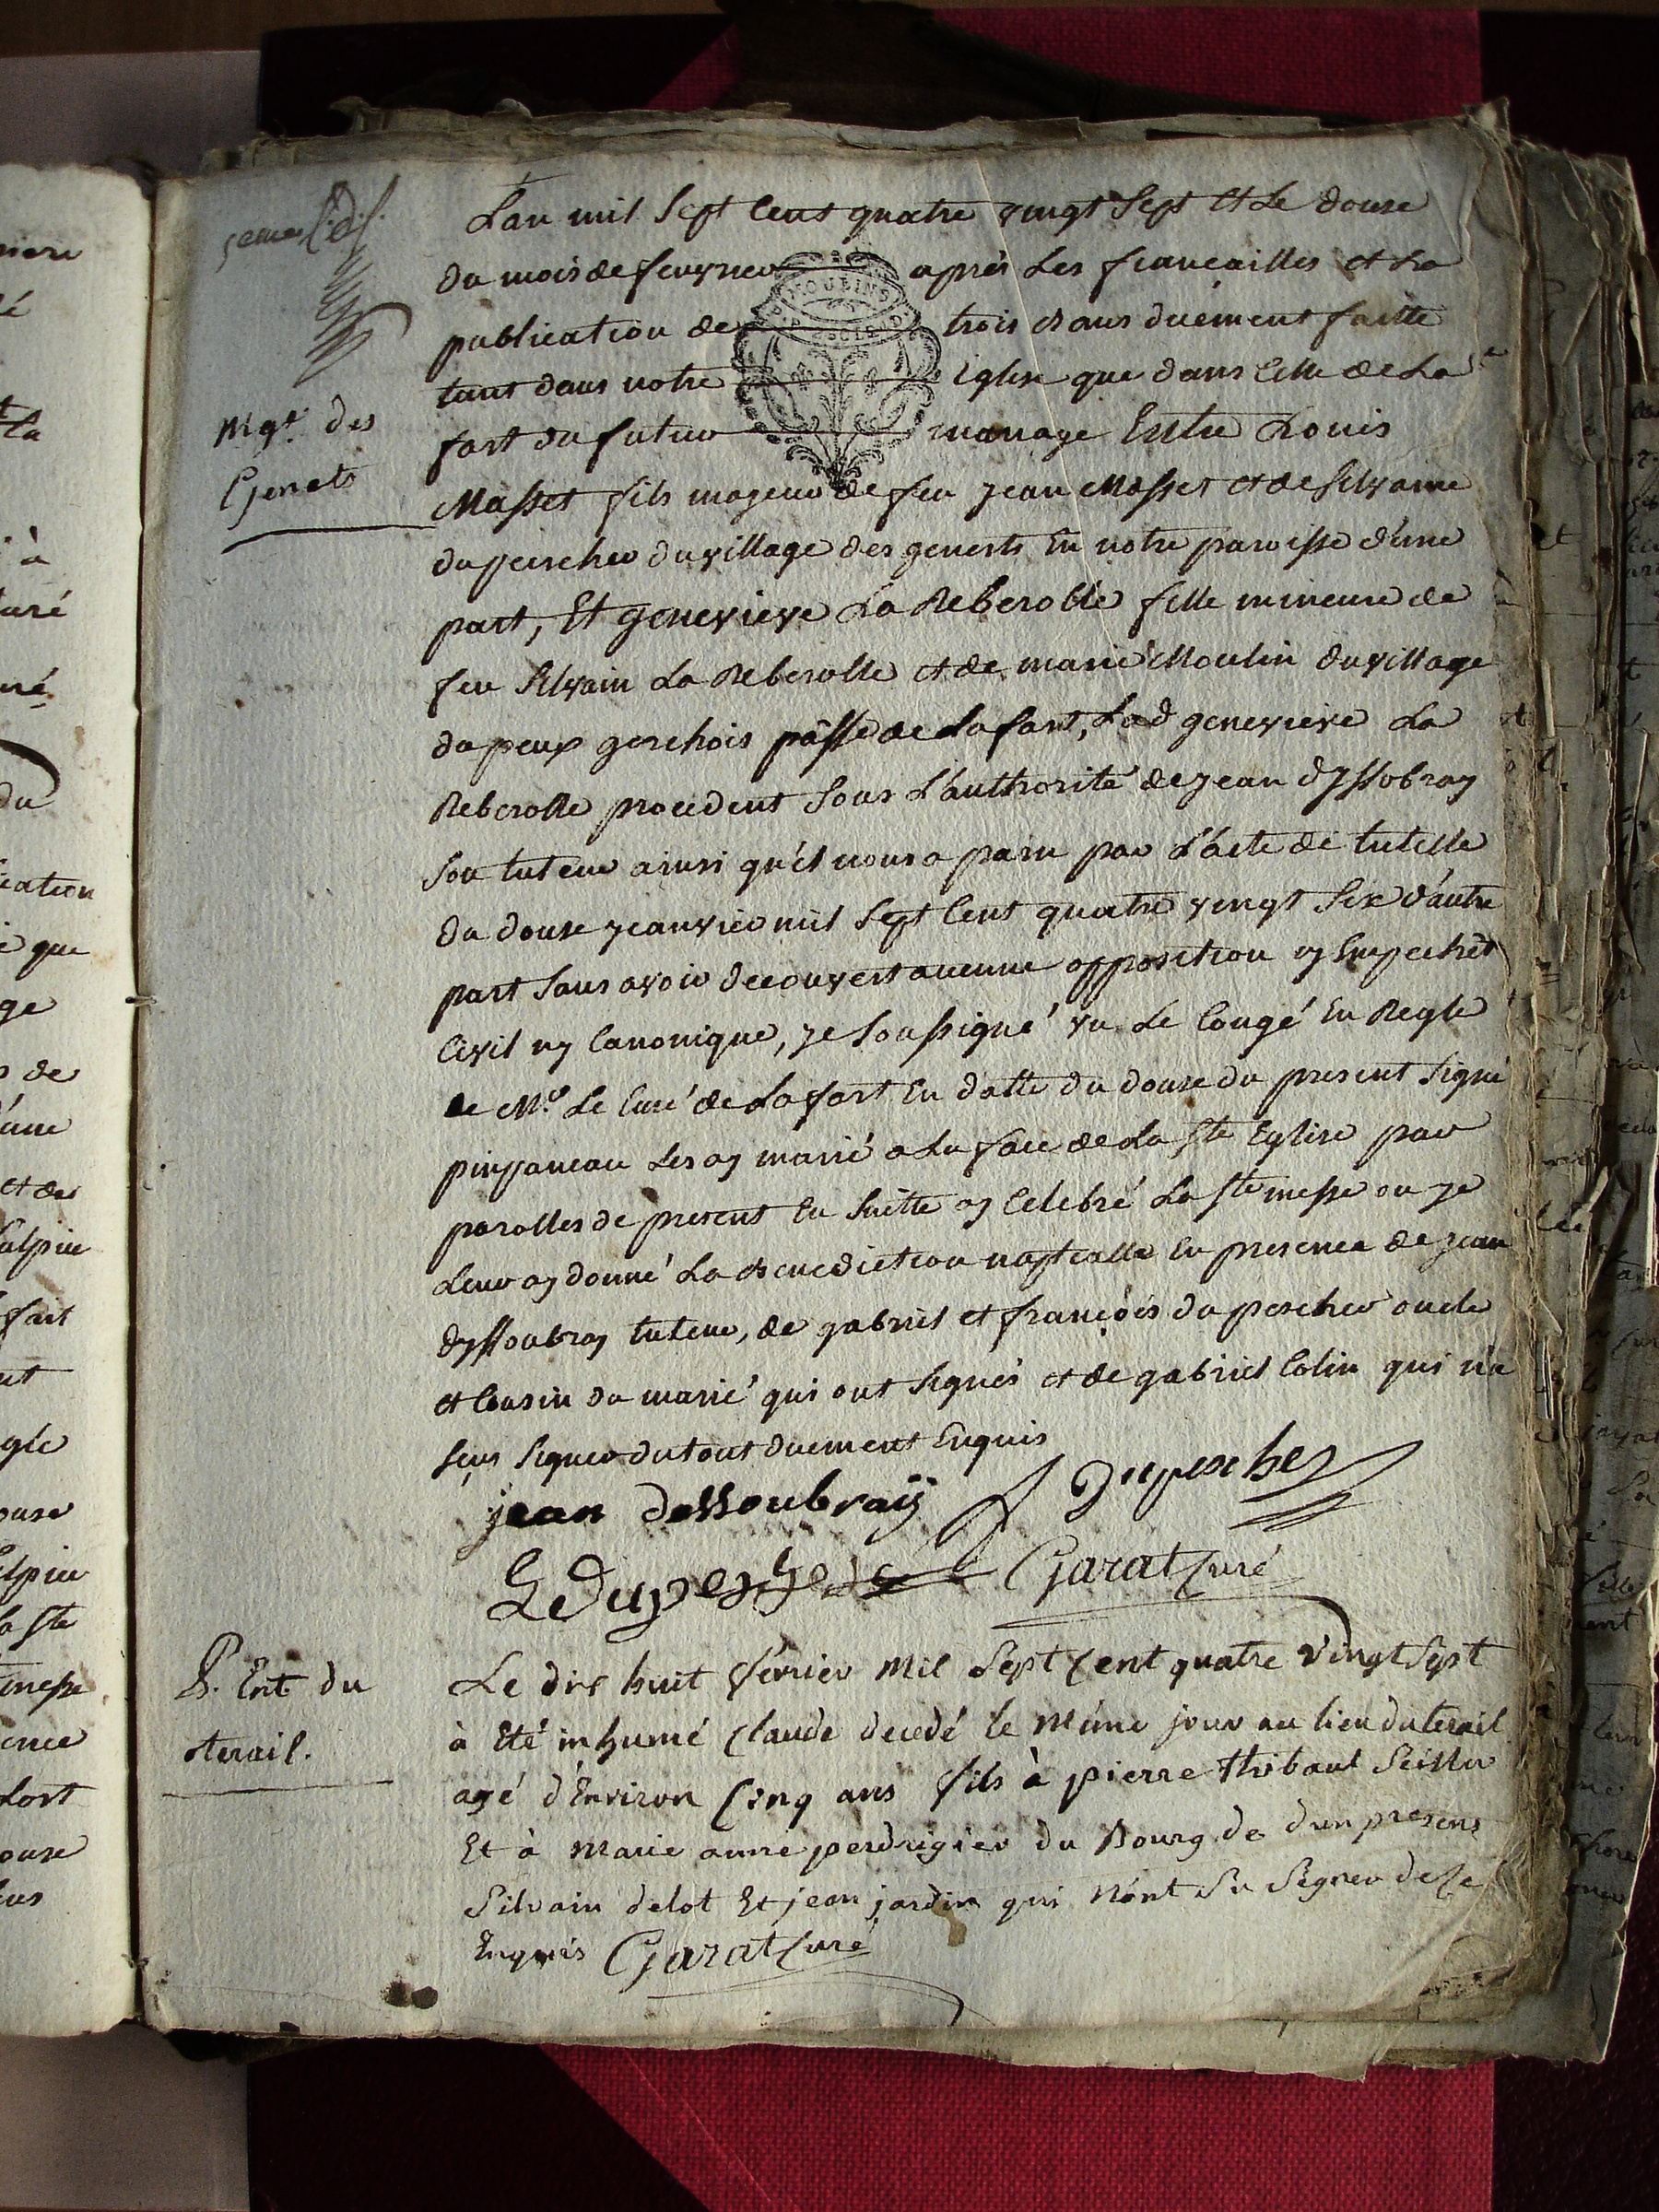 L'an mil Sept Cent quatre vingt Sept Et Le douse
du mois de fevyrier après Les fiançailles et La
publication de trois bans duëment faitte
tant dans notre Eglise que dans Celle de La
fart du futur mariage Entre Louis
Mgt. des
Genets
Masset fils mageur de feu jean Masset et de Silvaine
dupercher du village des genests En notre paroisse d'une
part, Et genevieve La Reberolle fille mineure de
feu Silvain La Reberolle et de marie Moulin du village
du peux gerchois passe de Lafart, Lad genevieve La
Reberolle procedent Sous L'authorité de jean dyssobray
Son tuteur ainsi qu'il nous a paru par L'acte de tutelle
du douse jeanvier mil Sept Cent quatre vingt Six d'autre
part Sans avoir decouvert aucune opposition ny Empechet
Civil ny Canonique, je Soussigné vu Le Congé En Regle
de Mr. Le Curé de Lafart En datte du douse du present Signé
pinjaneau Les ay marié a La face de La Ste Eglise par
parolles de present En Suitte ay Celebré La Ste messe ou je
Leur ay donné La benediction nuptealle En presence de jean
dyssoubray tuteur, de gabriel et françois du percher oncle
et Cousin du marié qui ont Signés et de gabriel Colin qui n'a
Seus Signer du tout duement Enquis
jean dessoubraÿ Duperche
G Duperche Garat Curé
P. Ent du
terail.
Le dix huit février Mil Sept Cent quatre vingt Sept
à Eté inhumé Claude decedé le Même jour au lieu du terail
agé d'Environ Cinq ans fils à pierre thibaut Seiller
Et à Marie anne perdrigier du Bourg de dun presens
Silvain delot Et jean jardin qui N'ont Su Signer de Ce
Enquis Garat Curé